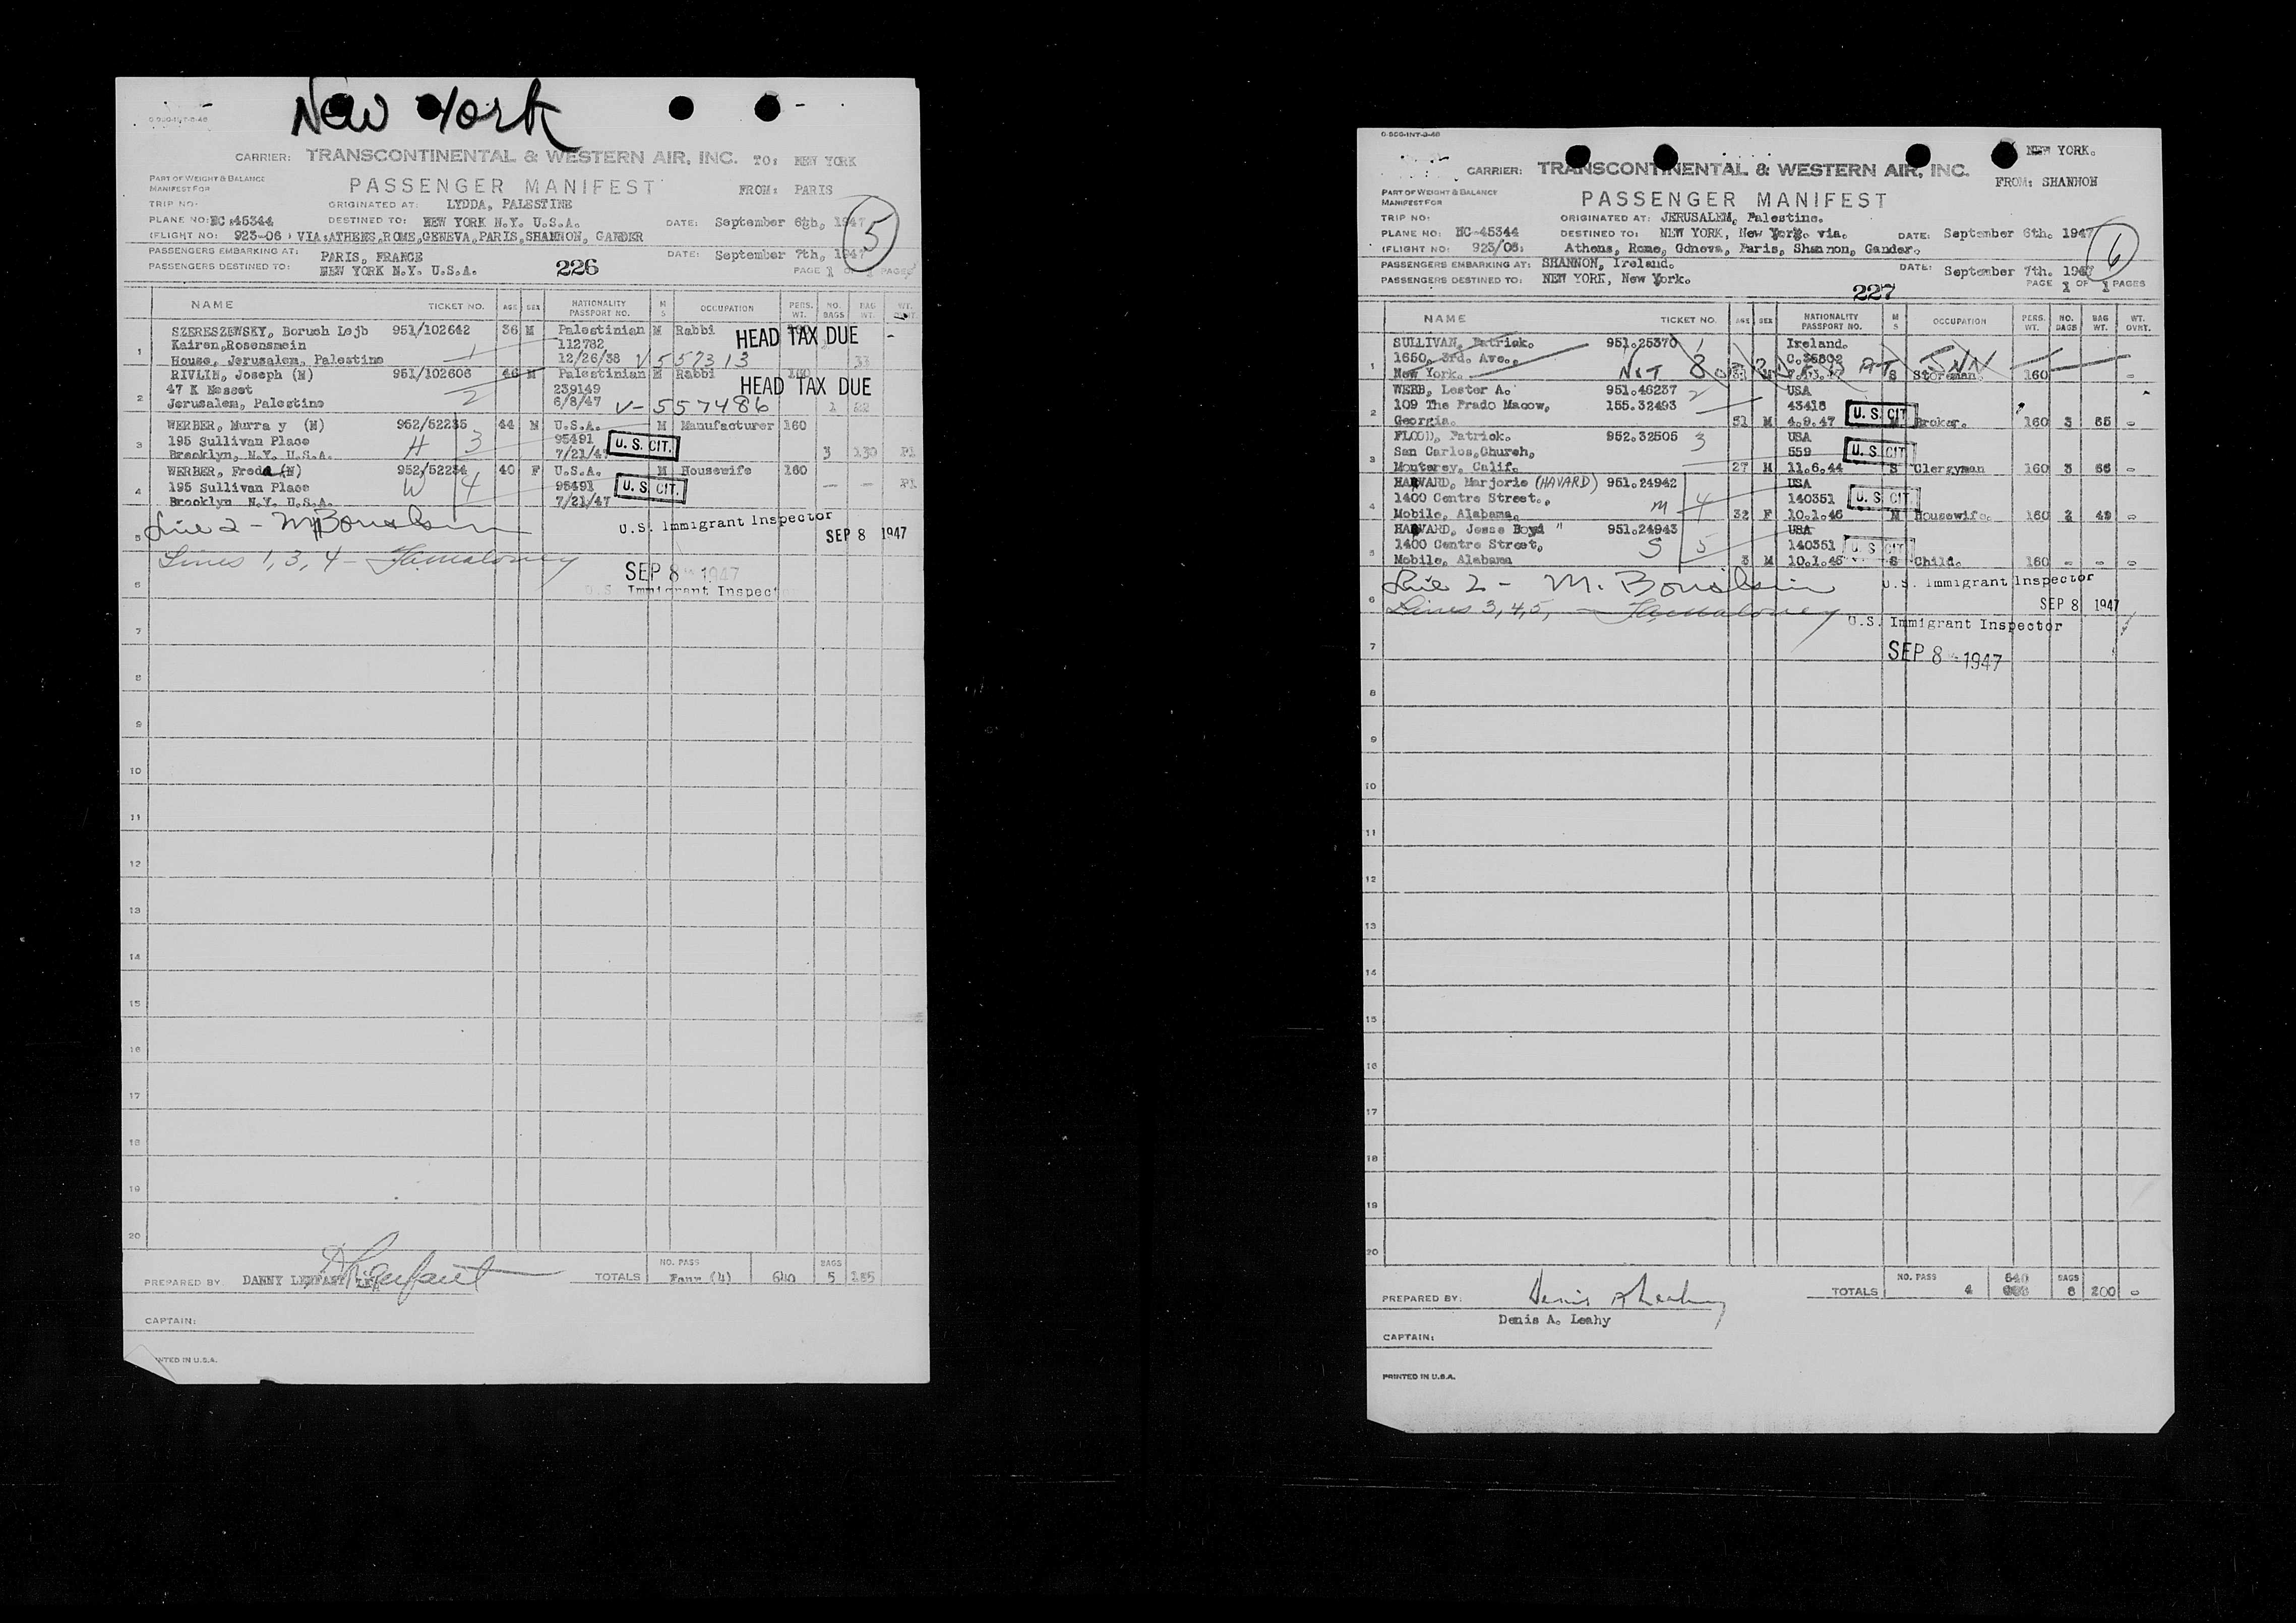 New York
CARRIER: TRANSCONTINENTAL & WESTERN AIR, INC. TO: NEW YORK
PART OF WEIGHT & BALANCE
MANIFEST FOR
PASSENGER MANIFEST FROM: PARIS
TRIP NO. ORIGINATED AT: LYDDA, PALESTINE
PLANE NO: NC-45344 DESTINED TO: NEW YORK N.Y. U.S.A. DATE: September 6th, 1947
(FLIGHT NO: 923-06) VIA:ATHENS,ROME,GENEVA,PARIS,SHANNON, GANDER
5
PASSENGERS EMBARKING AT: PARIS, FRANCE DATE: September 7th, 1947
PASSENGERS DESTINED TO: NEW YORK N.Y. U.S.A. 226 PAGE 1 OF 1 PAGES
NAME TICKET NO. AGE SEX NATIONALITY PASSPORT NO. M S OCCUPATION PERS. WT. NO. BAGS BAG WT. WT.
SZERESZEWSKY, Boruch Lejb 951/102642 36 M Palestinian M Rabbi HEAD TAX DUE
Kairen,Rosensmein 1 112782
1 House, Jerusalem, Palestine 12/26/38 V 552313 33
RIVLIN, Joseph (N) 951/102606 46 M Palestinian M Rabbi HEAD TAX DUE
47 K Nesset 2 239149
2 Jerusalem, Palestine 6/8/47 V-557486 1 22
WERBER, Murra y (N) 952/52235 44 M U.S.A. M Manufacturer 160
3 195 Sullivan Place H 3 95491 U. S. CIT.
Brooklyn, N.Y. U.S.A. 7/21/47 3 130
WERBER, Freda (N) 952/52234 40 F U.S.A. M Housewife 160
4 195 Sullivan Place W 4 95491 U. S. CIT.
Brooklyn N.Y. U.S.A. 7/21/47
5 Line 2 - U.S. Immigrant Inspector
SEP 8 1947
Lines 1, 3, 4 -
6 SEP 8 1947
U.S. Immigrant Inspector
7
8
9
10
11
12
13
14
15
16
17
18
19
20
PREPARED BY DANNY LENFANT TOTALS NO. PASS Four (4) 640 BAGS 5 185
CAPTAIN:
PRINTED IN U.S.A.
NEW YORK.
CARRIER: TRANSCONTINENTAL & WESTERN AIR, INC.
FROM: SHANNON
PART OF WEIGHT & BALANCE
MANIFEST FOR
PASSENGER MANIFEST
TRIP NO: ORIGINATED AT: JERUSALEM, Palestine.
PLANE NO: NC-45344 DESTINED TO: NEW YORK, New York. via. DATE: September 6th. 1947
(FLIGHT NO: 923/06) Athens, Rome, Gdneva, Paris, Shannon, Gander.
6
PASSENGERS EMBARKING AT: SHANNON, Ireland. DATE: September 7th. 1947
PASSENGERS DESTINED TO: NEW YORK, New York. 227 PAGE 1 OF 1 PAGES
NAME TICKET NO. AGE SEX NATIONALITY PASSPORT NO. M S OCCUPATION PERS. WT. NO. BAGS BAG WT. WT. OVRT.
SULLIVAN, Patrick. 951.25370 1 Ireland.
1 1650, 3rd. Ave., NOT BOARDED AT SNN
New York. M S Storeman. 160 -
WEBB, Lester A. 951.46237 2 USA
2 109 The Prado Macow, 155.32493 43418 U. S. CIT
Georgia. 51 M 4.9.47 M Broker. 160 3 65 o
FLOOD, Patrick. 952.32506 3 USA
3 San Carlos,Church, 559 U. S. CIT
Monterey, Calif. 27 M 11.6.44 S Clergyman 160 3 66 o
HARVARD, Marjorie (HAVARD) 951.24942 USA
4 1400 Centre Street., M 4 140351 U. S. CIT
Mobile, Alabama. 32 F 10.1.46 M Housewife. 160 2 49 o
HARVARD, Jesse Boyd " 951.24943 USA
5 1400 Centre Street, S 5 140351 U. S. CIT
Mobile, Alabama 3 M 10.1.46 S Child. 160 - - o
Line 2 - M. U.S. Immigrant Inspector
6 SEP 8 1947
Lines 3, 4, 5, -
U.S. Immigrant Inspector
7 SEP 8 - 1947
8
9
10
11
12
13
14
15
16
17
18
19
20
PREPARED BY: Denis A Leahy TOTALS NO. PASS 4 640 BAGS 8 200 o
Denis A. Leahy
CAPTAIN:
PRINTED IN U.S.A.